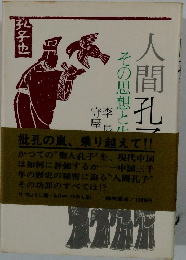 人間孔子
その思想と生
李長
守屋
孔子也
批孔の嵐、乗り越えて!!
かつての"聖人孔子"を、現代中国
は如何に評価するか――中国三千
年の歴史の秘密に迫る"人間孔子"
その功罪のすべては!?